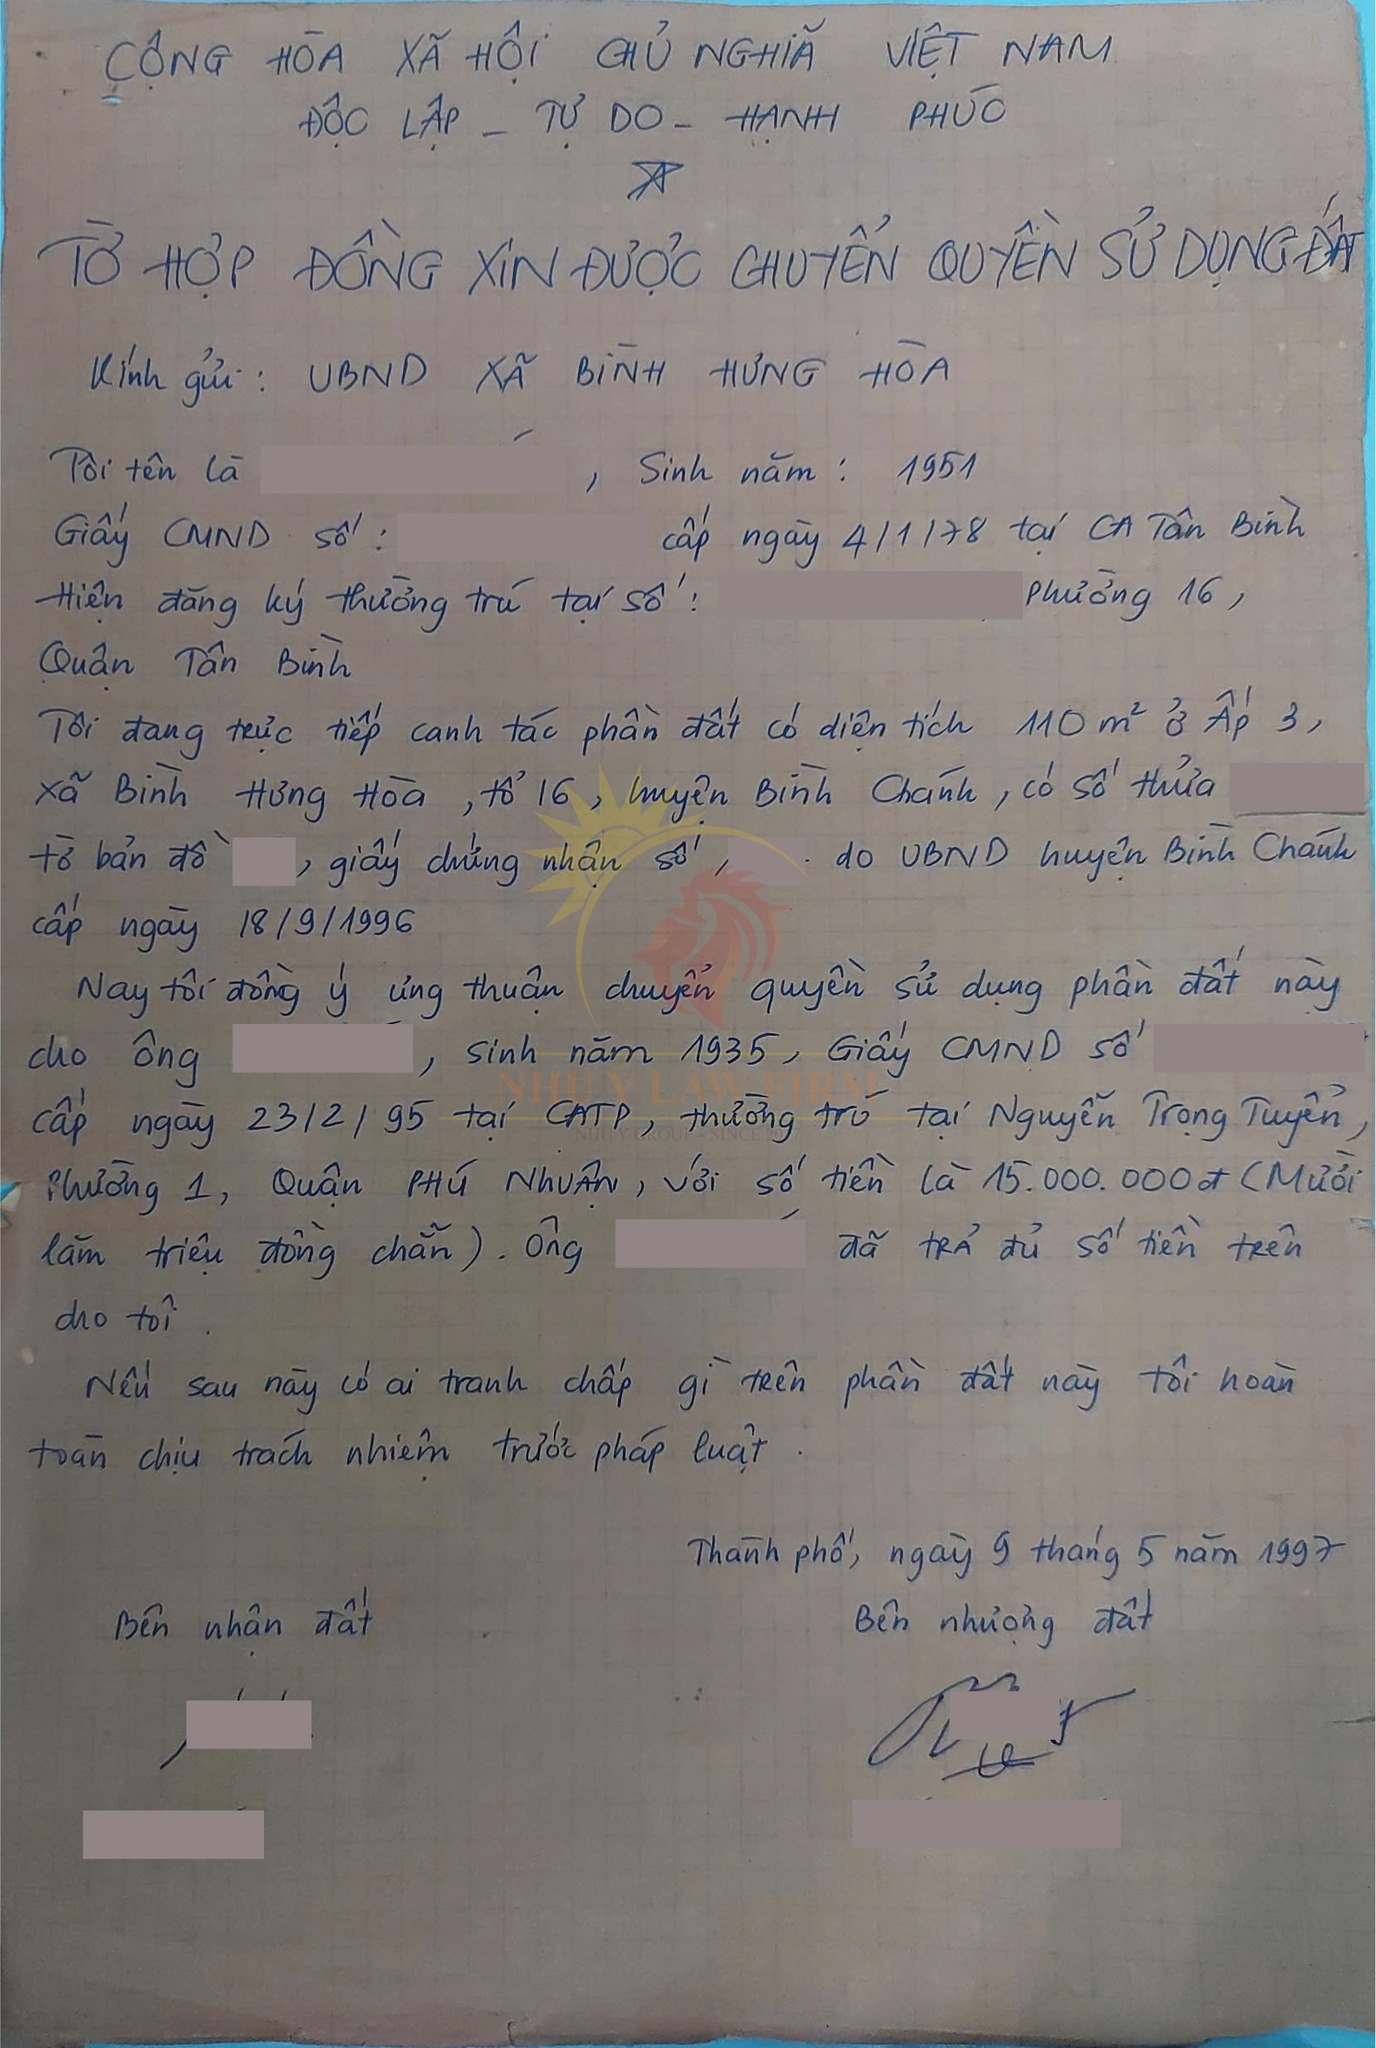 CỘNG HÒA XÃ HỘI CHỦ NGHIÃ VIỆT NAM
ĐỘC LẬP - TỰ DO - HẠNH PHÚC
TỜ HỢP ĐỒNG XIN ĐƯỢC CHUYỂN QUYỀN SỬ DỤNG ĐẤT
Kính gửi: UBND XÃ BÌNH HƯNG HÒA
Tôi tên là , Sinh năm: 1951
Giấy CMND số: cấp ngày 4/1/78 tại CA Tân Bình
Hiện đăng ký thường trú tại số: Phường 16,
Quận Tân Bình
Tôi đang trực tiếp canh tác phần đất có diện tích 110 m² ở Ấp 3,
Xã Bình Hưng Hòa, tổ 16, huyện Bình Chánh, có số thửa
tờ bản đồ , giấy chứng nhận số, do UBND huyện Bình Chánh
cấp ngày 18/9/1996
Nay tôi đồng ý ưng thuận chuyển quyền sử dụng phần đất này
cho ông , sinh năm 1935, Giấy CMND số
cấp ngày 23/2/95 tại CATP, thường trú tại Nguyễn Trọng Tuyển,
NHU Y LAW FIRM
NHU Y GROUP - SINCE
Phường 1, Quận PHÚ NHUẬN, với số tiền là 15.000.000đ (Mười
lăm triệu đồng chẵn). Ông đã TRẢ đủ số tiền trên
cho tôi.
Nếu sau này có ai tranh chấp gì trên phần đất này tôi hoàn
toàn chịu trách nhiệm trước pháp luật.
Thành phố, ngày 9 tháng 5 năm 1997
Bên nhận đất Bên nhượng đất